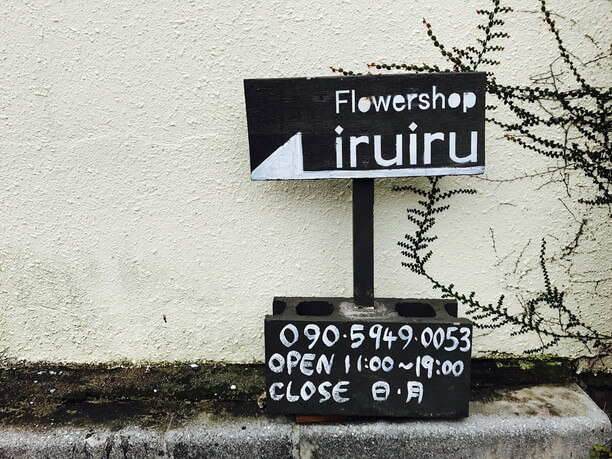 Flowershop
iruiru
090·5949·0053
OPEN 11:00~19:00
CLOSE 日·月